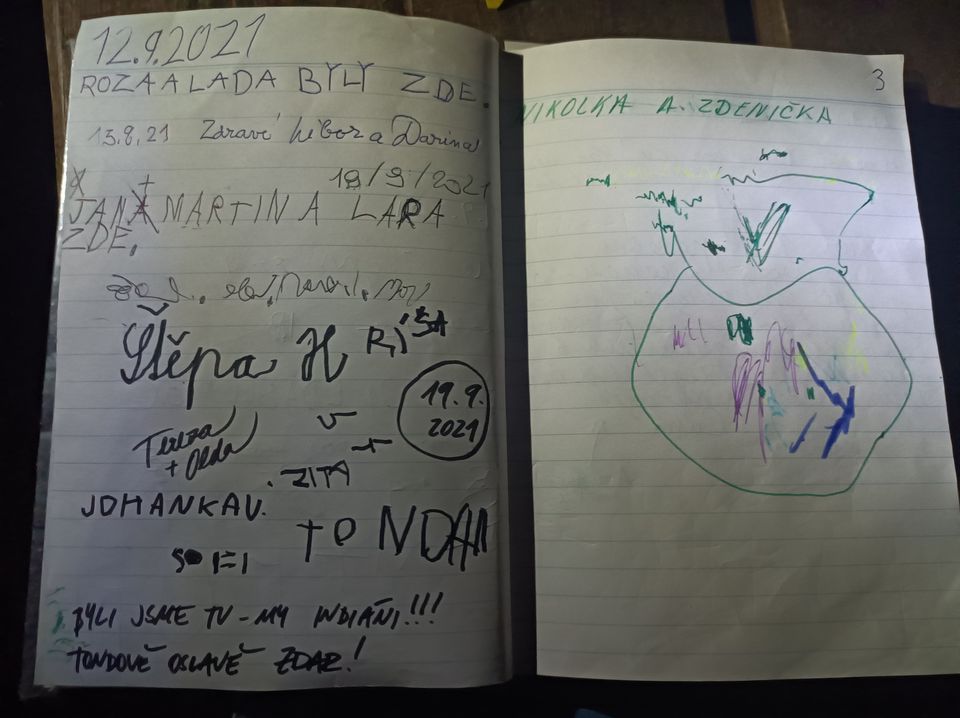 12.9.2021
ROZA A LADA BYLY ZDE.
13.9.21 Zdraví Libor a Darina
19/9/2021
JAN A MARTIN A LARA
ZDE.
Štěpa H RÍŠA
19.9.
2021
Tereza
+ Olda
ZITA
JOHANKA V.
TONDA H
BYLI JSME TU - MY INDIÁNI!!!
TONDOVĚ OSLAVĚ ZDAR!
3
NIKOLKA A. ZDENIČKA